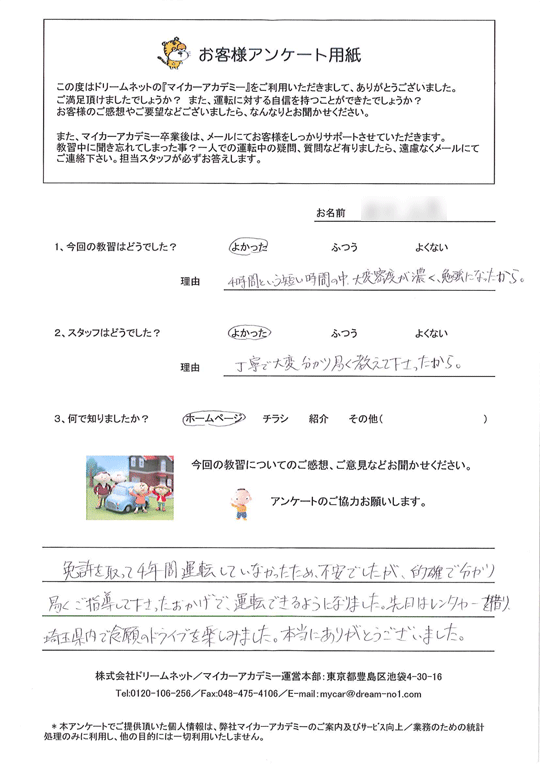 お客様アンケート用紙
この度はドリームネットの『マイカーアカデミー』をご利用いただきまして、ありがとうございました。
ご満足頂けましたでしょうか？ また、運転に対する自信を持つことができたでしょうか？
お客様のご感想やご要望などございましたら、なんなりとお聞かせください。
また、マイカーアカデミー卒業後は、メールにてお客様をしっかりサポートさせていただきます。
教習中に聞き忘れてしまった事？一人での運転中の疑問、質問など有りましたら、遠慮なくメールにて
ご連絡下さい。担当スタッフが必ずお答えします。
お名前
1、今回の教習はどうでした？ よかった ふつう よくない
理由 4時間という短い時間の中、大変密度が濃く、勉強になったから。
2、スタッフはどうでした？ よかった ふつう よくない
理由 丁寧で大変分かり易く教えて下さったから。
3、何で知りましたか？ ホームページ チラシ 紹介 その他( )
今回の教習についてのご感想、ご意見などお聞かせください。
アンケートのご協力お願いします。
免許を取って4年間運転していなかったため、不安でしたが、的確で分かり
易くご指導して下さったおかげで、運転できるようになりました。先日はレンタカーを借り、
埼玉県内で念願のドライブを楽しみました。本当にありがとうございました。
株式会社ドリームネット／マイカーアカデミー運営本部：東京都豊島区池袋4-30-16
Tel:0120-106-256／Fax:048-475-4106／E-mail:mycar@dream-no1.com
＊本アンケートでご提供頂いた個人情報は、弊社マイカーアカデミーのご案内及びサービス向上／業務のための統計
処理のみに利用し、他の目的には一切利用いたしません。